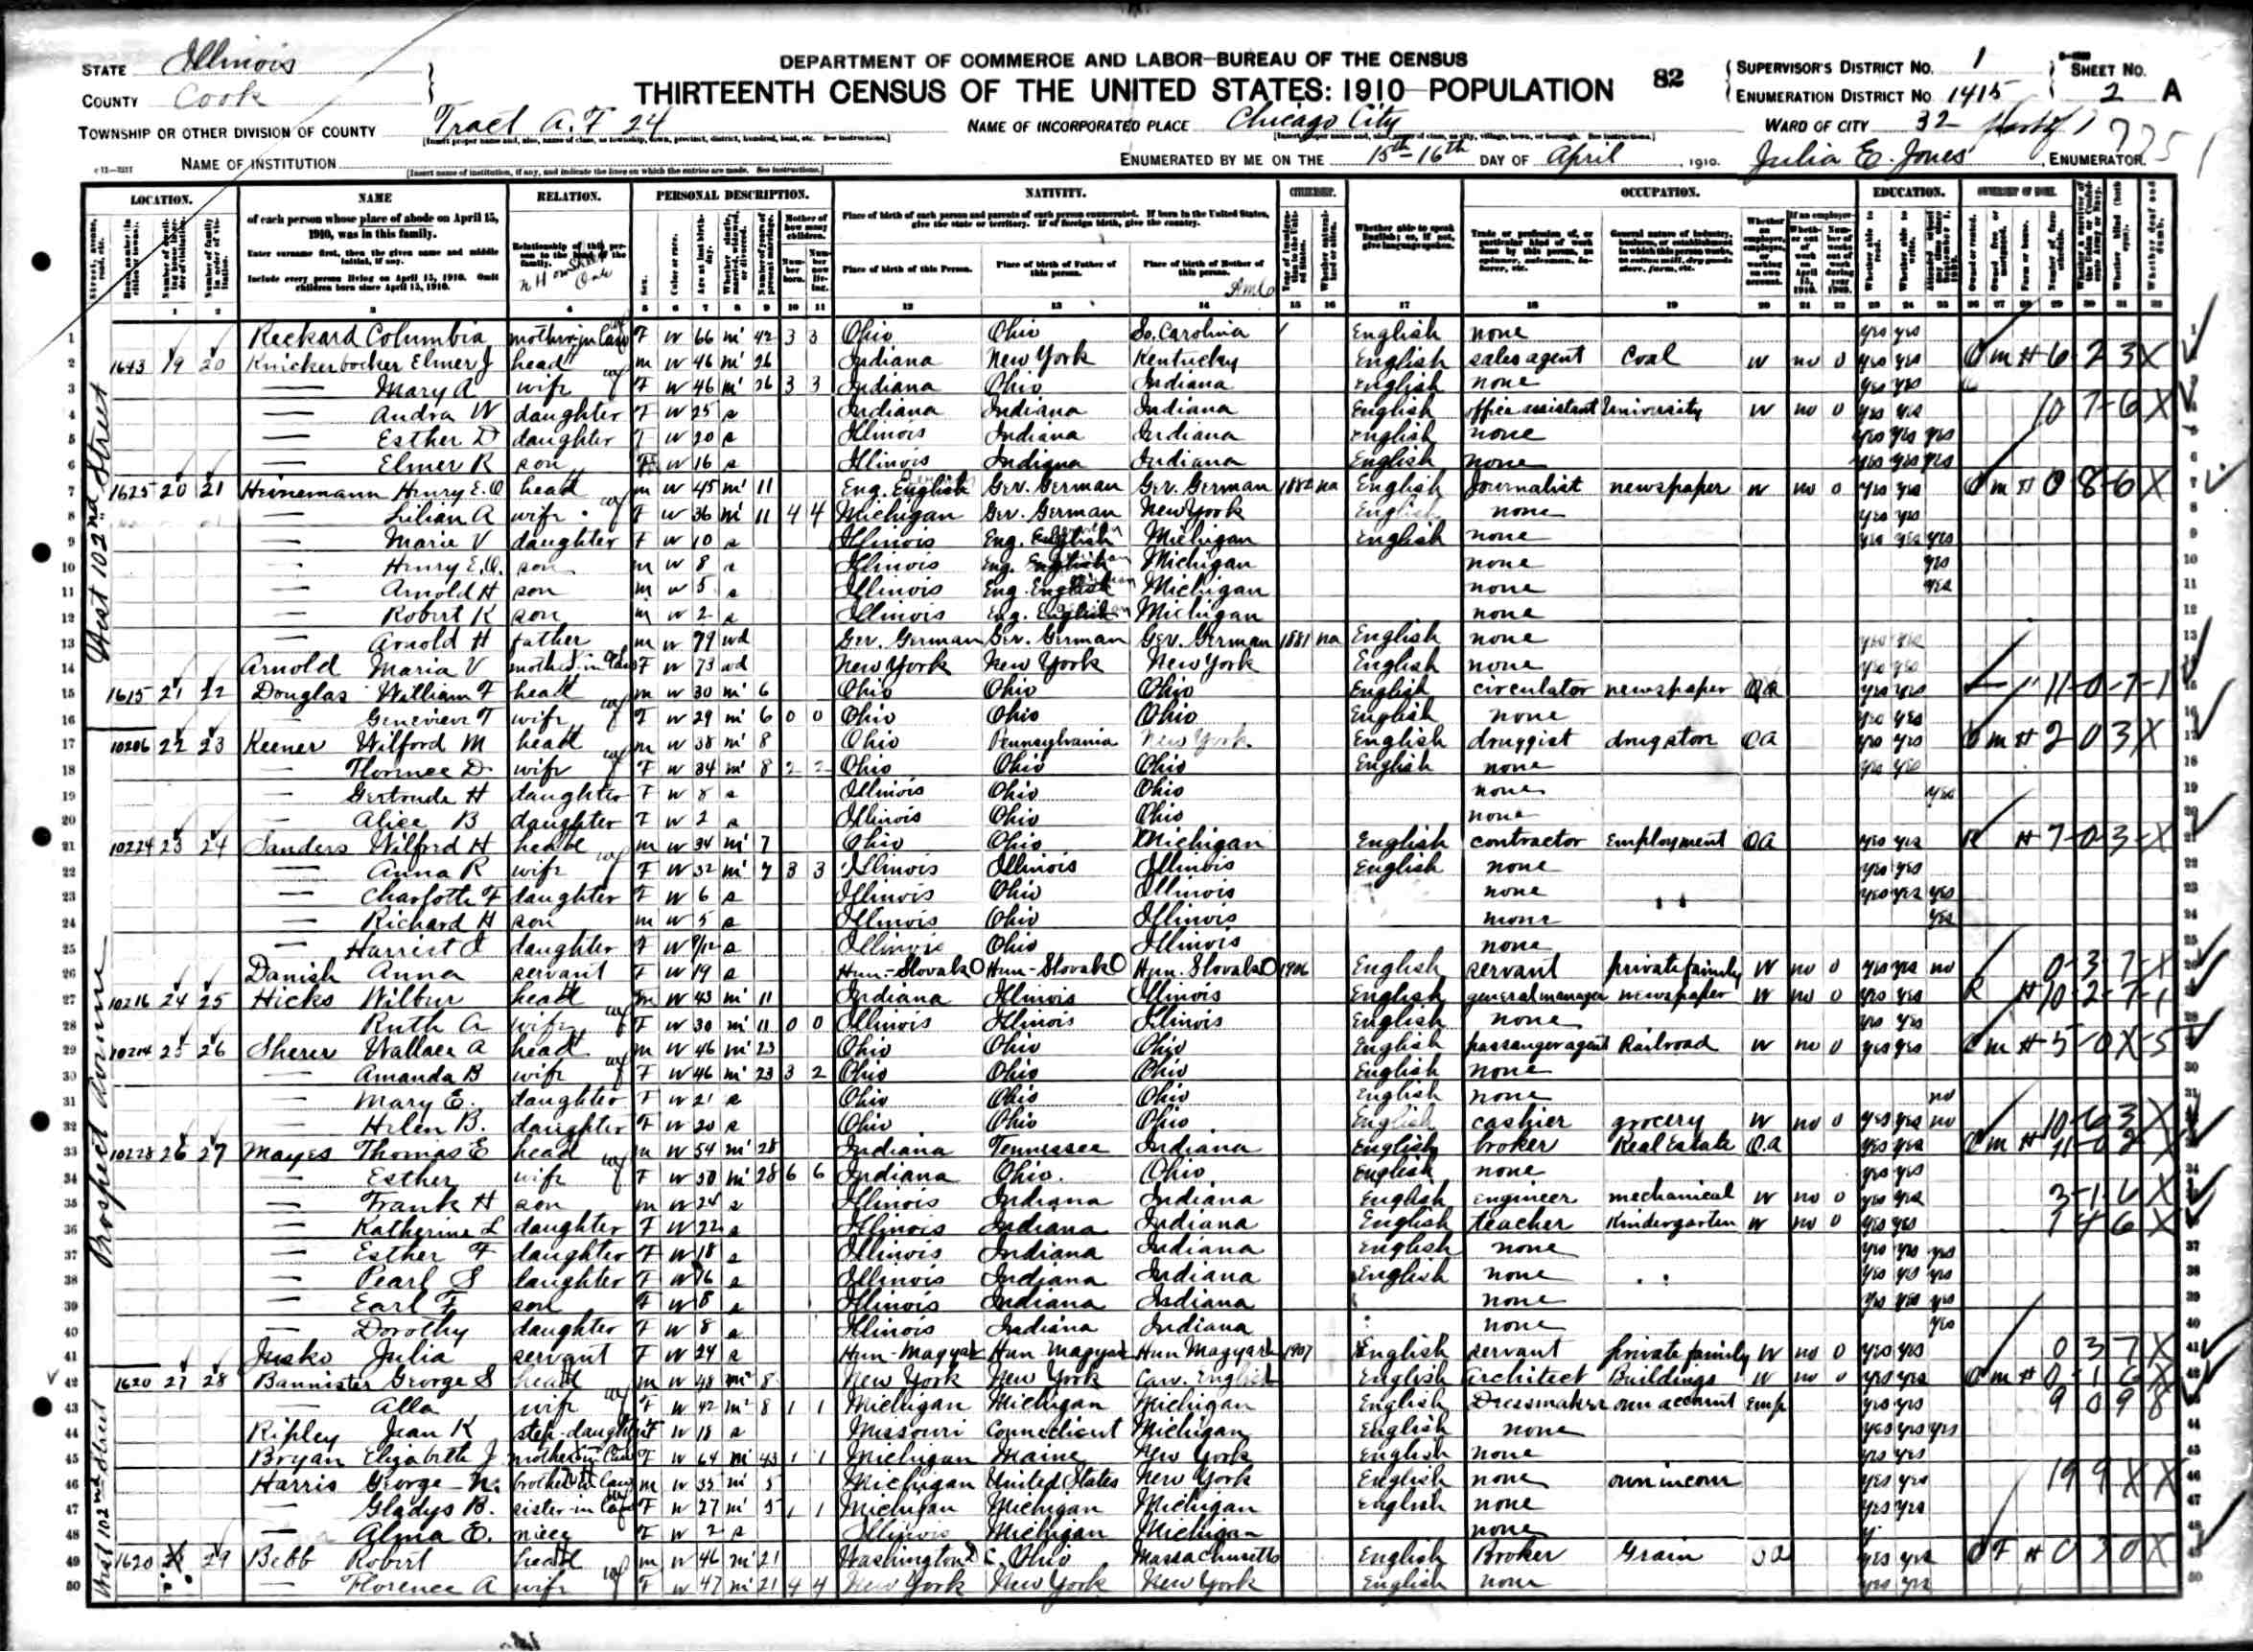 DEPARTMENT OF COMMERCE AND LABOR—BUREAU OF THE CENSUS
THIRTEENTH CENSUS OF THE UNITED STATES: 1910 POPULATION
82
STATE Illinois
COUNTY Cook
TOWNSHIP OR OTHER DIVISION OF COUNTY Tract A.F 24
NAME OF INSTITUTION
NAME OF INCORPORATED PLACE Chicago City
ENUMERATED BY ME ON THE 15th-16th DAY OF April, 1910.
SUPERVISOR'S DISTRICT No. 1
ENUMERATION DISTRICT No 1415
SHEET No. 2 A
WARD OF CITY 32
Julia E. Jones, ENUMERATOR.
LOCATION. NAME RELATION. PERSONAL DESCRIPTION. NATIVITY. CITIZENSHIP. OCCUPATION. EDUCATION. OWNERSHIP OF HOME.
of each person whose place of abode on April 15, 1910, was in this family.
Enter surname first, then the given name and middle initial, if any.
Include every person living on April 15, 1910. Omit children born since April 15, 1910.
Place of birth of each person and parents of each person enumerated. If born in the United States, give the state or territory. If of foreign birth, give the country.
Place of birth of this Person. Place of birth of Father of this person. Place of birth of Mother of this person.
West 102nd Street
1 Reckard Columbia mother in law F W 66 m 42 3 3 Ohio Ohio So. Carolina English none yes yes
2 1643 19 20 Knickerbocker Elmer J head m W 46 m 26 Indiana New York Kentucky English sales agent Coal W no 0 yes yes O m H 6-2-3-X
3 — Mary A wife F W 46 m 26 3 3 Indiana Ohio Indiana English none yes yes
4 — Andra W daughter F W 25 s Indiana Indiana Indiana English office assistant University W no 0 yes yes 10 7-6 X
5 — Esther D daughter F W 20 s Illinois Indiana Indiana English none yes yes yes
6 — Elmer R son W 16 s Illinois Indiana Indiana English none yes yes yes
7 1625 20 21 Heinemann Henry E.O head m W 45 m 11 Eng. English Ger. German Ger. German 1882 na English Journalist newspaper W no 0 yes yes O m H 0 8-6 X
8 — Lilian A wife F W 36 m 11 4 4 Michigan Ger. German New York English none yes yes
9 — Marie V daughter F W 10 s Illinois Eng. English Michigan English none yes yes yes
10 — Henry E.O. son m W 8 s Illinois Eng. English Michigan none yes
11 — Arnold H son m W 5 s Illinois Eng. English Michigan none yes
12 — Robert K son m W 2 s Illinois Eng. English Michigan none
13 — Arnold H father m W 79 wd Ger. German Ger. German Ger. German 1881 na English none yes yes
14 Arnold Maria V mother in law F W 73 wd New York New York New York English none yes yes
15 1615 21 22 Douglas William F head m W 30 m 6 Ohio Ohio Ohio English circulator newspaper OA yes yes 11-0-7-1
16 — Genevieve T wife F W 29 m 6 0 0 Ohio Ohio Ohio English none yes yes
Prospect Avenue
17 10206 22 23 Keener Wilford M head m W 38 m 8 Ohio Pennsylvania New York English druggist drugstore OA yes yes O m H 2 0 3 X
18 — Florence D wife F W 34 m 8 2 2 Ohio Ohio Ohio English none yes yes
19 — Gertrude H daughter F W 8 s Illinois Ohio Ohio none yes
20 — Alice B daughter F W 2 s Illinois Ohio Ohio none
21 10224 23 24 Sanders Wilford H head m W 34 m 7 Ohio Ohio Michigan English contractor Employment OA yes yes R H 7-0-3-X
22 — Anna R wife F W 32 m 7 3 3 Illinois Illinois Illinois English none yes yes
23 — Charlotte F daughter F W 6 s Illinois Ohio Illinois none yes yes yes
24 — Richard H son m W 5 s Illinois Ohio Illinois none yes
25 — Harriet J daughter F W 9/12 s Illinois Ohio Illinois none
26 Danish Anna servant F W 19 s Hun-Slovak Hun-Slovak Hun. Slovak 1906 English servant private family W no 0 yes yes no 0-3-7-X
27 10216 24 25 Hicks Wilbur head m W 43 m 11 Indiana Illinois Illinois English general manager newspaper W no 0 yes yes R H 10-2-7-1
28 — Ruth A wife F W 30 m 11 0 0 Illinois Illinois Illinois English none yes yes
29 10214 25 26 Sherer Wallace A head m W 46 m 23 Ohio Ohio Ohio English passenger agent Railroad W no 0 yes yes O m H 5-0X-5
30 — Amanda B wife F W 46 m 23 3 2 Ohio Ohio Ohio English none
31 — Mary E. daughter F W 21 s Ohio Ohio Ohio English none no
32 — Helen B. daughter F W 20 s Ohio Ohio Ohio English cashier grocery W no 0 yes yes no 10-6 3 X
33 10228 26 27 Mayes Thomas E head m W 54 m 28 Indiana Tennessee Indiana English broker Real Estate O.a yes yes O m H
34 — Esther wife F W 50 m 28 6 6 Indiana Ohio. Ohio English none yes yes
35 — Frank H son m W 24 s Illinois Indiana Indiana English engineer mechanical W no 0 yes yes 3-1-6 X
36 — Katherine L daughter F W 22 s Illinois Indiana Indiana English teacher Kindergarten W no 0 yes yes 7 4 6 X
37 — Esther F daughter F W 18 s Illinois Indiana Indiana English none yes yes yes
38 — Pearl S daughter F W 16 s Illinois Indiana Indiana English none yes yes yes
39 — Earl F son F W 8 s Illinois Indiana Indiana none yes yes yes
40 — Dorothy daughter F W 8 s Illinois Indiana Indiana none yes
41 Jusko Julia servant F W 24 s Hun-Magyar Hun Magyar Hun Magyar 1907 English servant private family W no 0 yes yes 0 3 7 X
West 102nd Street
42 1620 27 28 Bannister George S head m W 48 m 8 New York New York Can. English English architect Buildings W no 0 yes yes O m H 0-1 6 X
43 — Alla wife F W 42 m 8 1 1 Michigan Michigan Michigan English Dressmaker own account emp yes yes 9 0 9 8
44 Ripley Jean K step-daughter F W 18 s Missouri Connecticut Michigan English none yes yes yes
45 Bryan Elizabeth J mother in law F W 64 m 43 1 1 Michigan Maine New York English none yes yes
46 Harris George N. brother in law m W 35 m 5 Michigan United States New York English none own income yes yes 19 9 X X
47 — Gladys B. sister-in law F W 27 m 5 1 1 Michigan Michigan Michigan English none yes yes
48 — Alma E. niece F W 2 s Illinois Michigan Michigan none
49 1620 29 Bebb Robert head m W 46 m 21 Washington D C. Ohio Massachusetts English Broker Grain O a yes yes O F H 0 3 0 X
50 — Florence A wife F W 47 m 21 4 4 New York New York New York English none yes yes